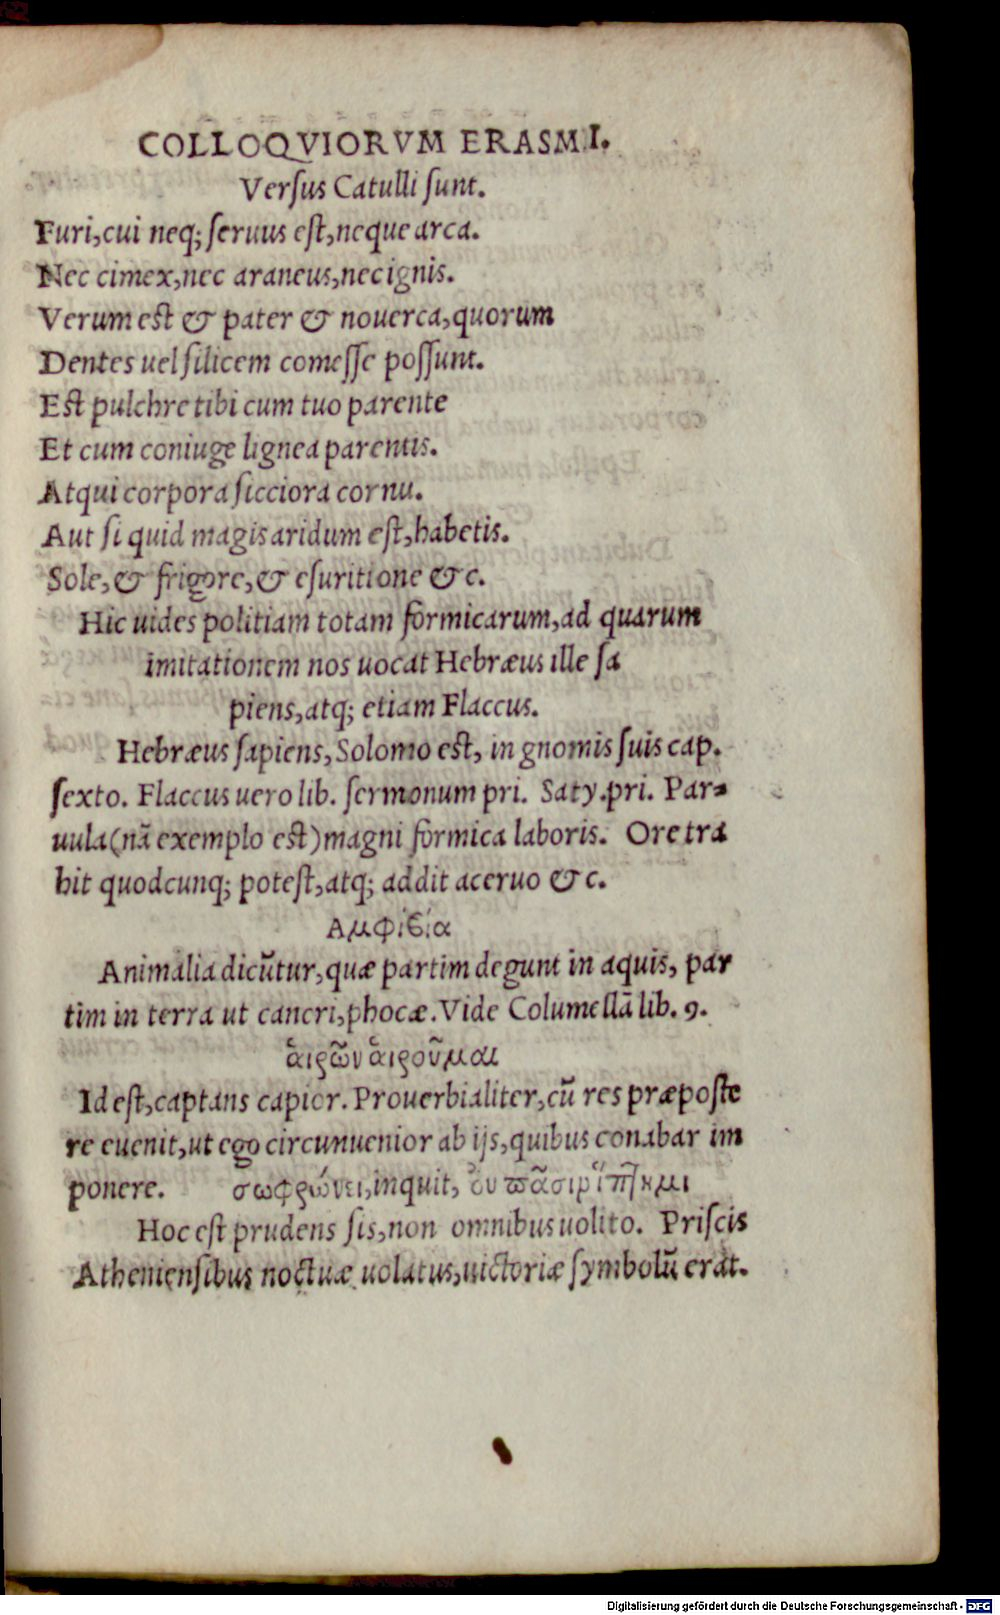 COLLOQVIORVM ERASMI.
Versus Catulli sunt.
Furi,cui neq; seruus est,neque arca.
Nec cimex,nec araneus,nec ignis.
Verum est & pater & nouerca,quorum
Dentes uel silicem comesse possunt.
Est pulchre tibi cum tuo parente
Et cum coniuge lignea parentis.
Atqui corpora sicciora cornu.
Aut si quid magis aridum est,habetis.
Sole,& frigore,& esuritione &c.
Hic uides politiam totam formicarum,ad quarum
imitationem nos uocat Hebræus ille sa
piens,atq; etiam Flaccus.
Hebræus sapiens, Solomo est, in gnomis suis cap.
sexto. Flaccus uero lib. sermonum pri. Saty.pri. Par-
uula(nã exemplo est)magni formica laboris. Ore tra
hit quodcunq; potest,atq; addit aceruo &c.
Αμφίβία
Animalia dicũtur,quæ partim degunt in aquis, par
tim in terra ut cancri,phocæ.Vide Columellã lib. 9.
ἁιρῶν ἁιροῦμαι
Id est,captans capior. Prouerbialiter,cũ res præposte
re euenit,ut ego circunuenior ab ijs,quibus conabar im
ponere. σωφρώνει,inquit, ὀυ πᾶσιν ἵπτημι
Hoc est prudens sis,non omnibus uolito. Priscis
Atheniensibus noctuæ uolatus,uictoriæ symbolũ erat.
Digitalisierung gefördert durch die Deutsche Forschungsgemeinschaft - DFG